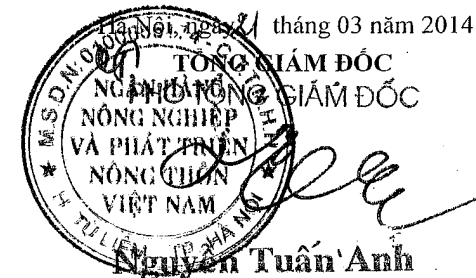 Hà Nội, ngày 21 tháng 03 năm 2014
TỔNG GIÁM ĐỐC
PHÓ TỔNG GIÁM ĐỐC
M.S.D.N:
NGÂN HÀNG
NÔNG NGHIỆP
VÀ PHÁT TRIỂN
NÔNG THÔN
VIỆT NAM
H. TỪ LIÊM TP. HÀ NỘI
Nguyễn Tuấn Anh